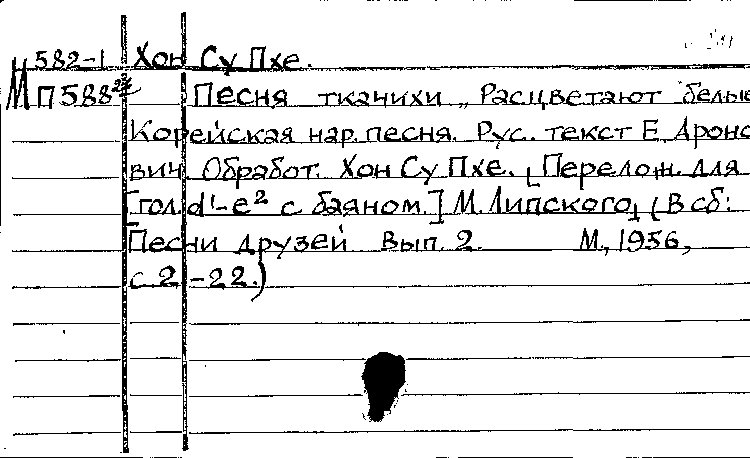 582-1 Хон Су Пхе.
М П588 Песня ткачихи „Расцветают белые
Корейская нар. песня. Рус. текст Е. Ароно
вич. Обработ. Хон Су Пхе. [Перелож. для
[гол. d¹-e² с баяном.] М. Липского] (В сб:
Песни друзей Вып. 2. М., 1956,
с. 2 -22.)